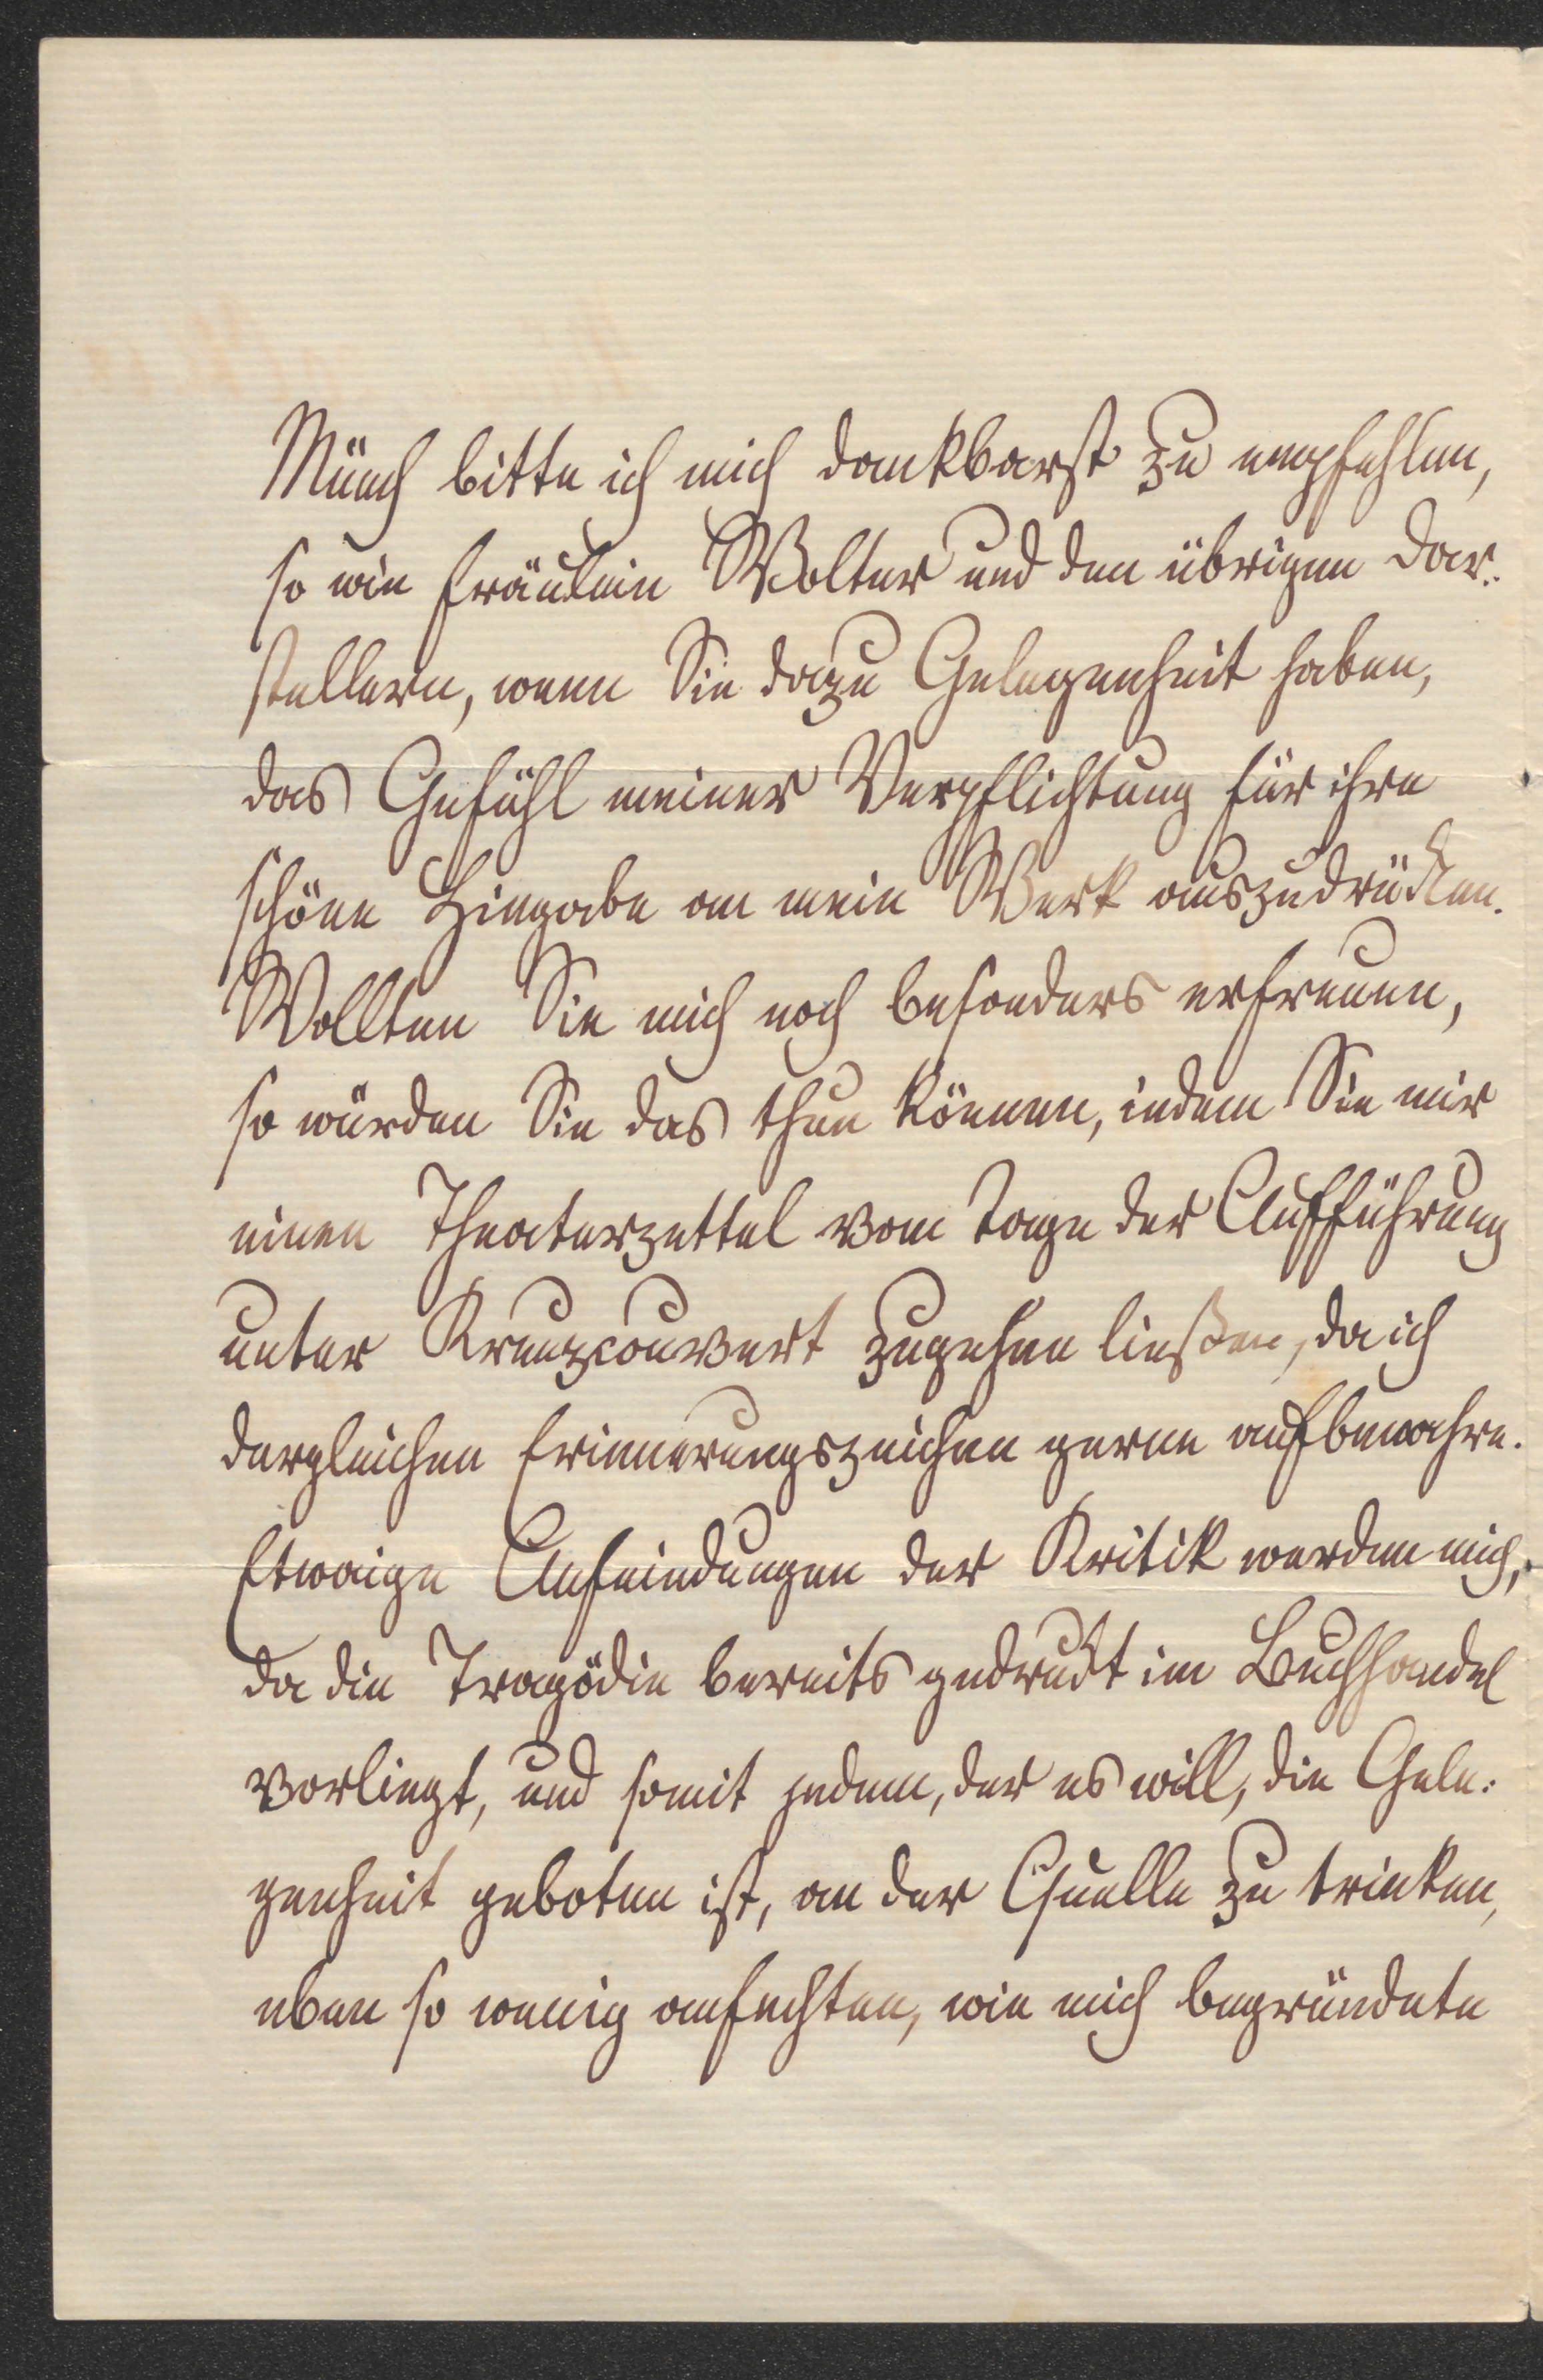 Münch bitte ich mich dankbarst zu empfehlen,
so wie Fräulein Wolter und den übrigen Dar:
stellern, wenn Sie dazu Gelegenheit haben,
das Gefühl meiner Verpflichtung für ihre
schöne Hingabe an mein Werk auszudrücken.
Wollten Sie mich noch besonders erfreuen,
so würden Sie das thun können, indem Sie mir
einen Theaterzettel vom Tage der Aufführung
unter Kreuzcouvert zugehen ließen, da ich
dergleichen Erinnerungszeichen gerne aufbewahre.
Etwaige Anfeindungen der Kritik werden mich,
da die Tragödie bereits gedruckt im Buchhandel
vorliegt, und somit jedem, der es will, die Gele:
genheit geboten ist, an der Quelle zu trinken,
eben so wenig anfechten, wie mich begründete